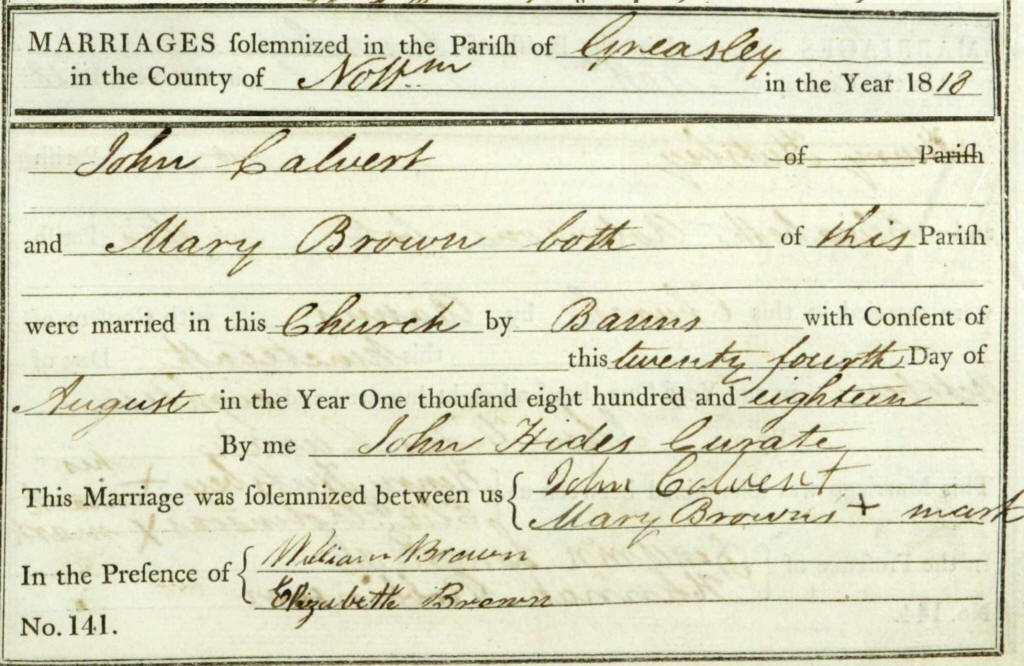 MARRIAGES ſolemnized in the Pariſh of Greasley
in the County of Nottm in the Year 1818
John Calvert of Pariſh
and Mary Brown both of this Pariſh
were married in this Church by Banns with Conſent of
this twenty fourth Day of
August in the Year One thouſand eight hundred and eighteen
By me John Hides Curate
This Marriage was ſolemnized between us { John Calvert
Mary Browns + mark
In the Preſence of { William Brown
Elizabeth Brown
No. 141.